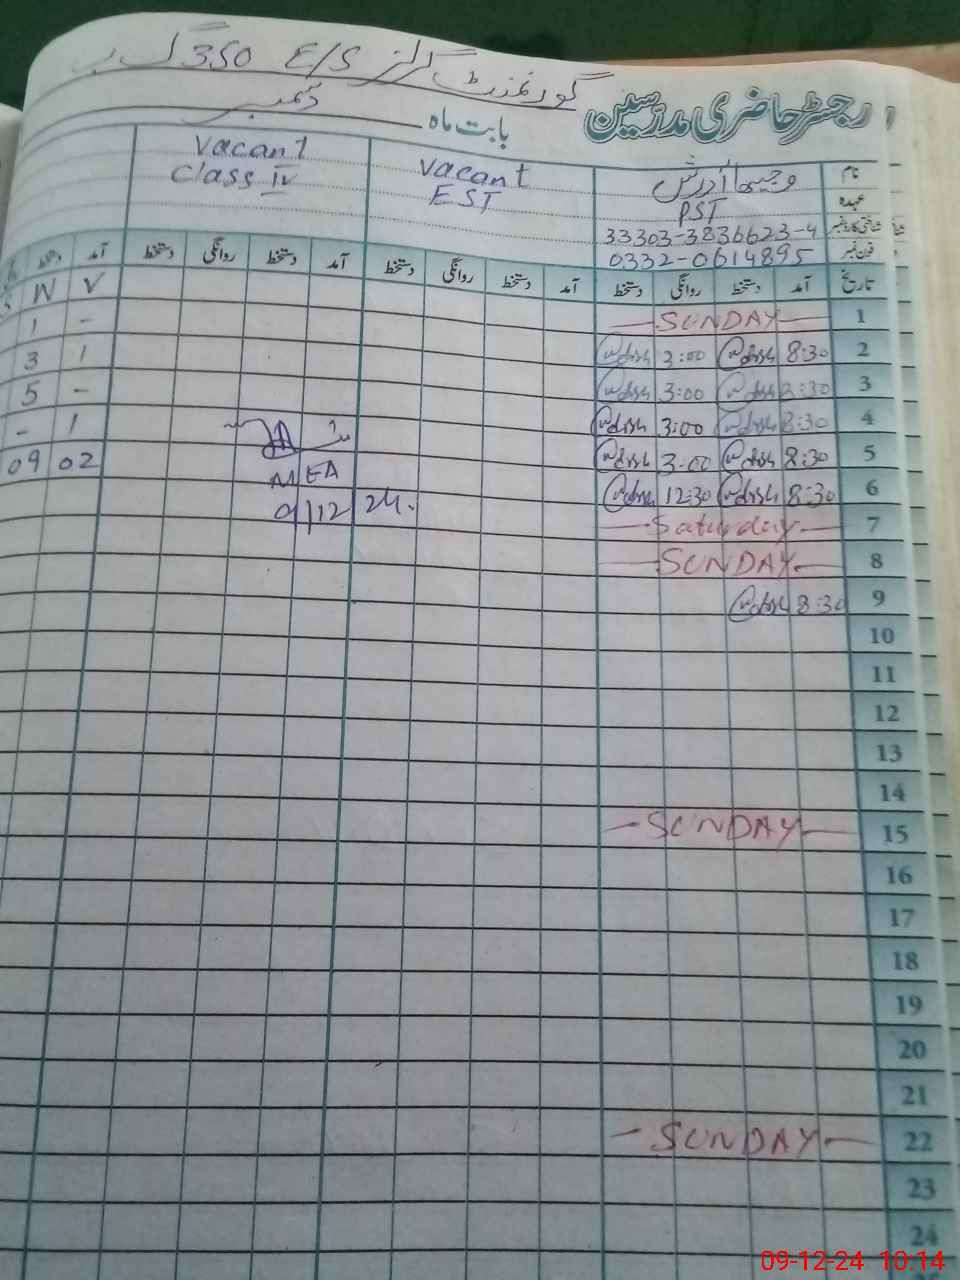 گورنمنٹ گرلز E/S 350 گ ب
رجسٹر حاضری مدرسین
بابت ماہ دسمبر
نام
عہدہ PST Vacant EST Vacant Class IV
شناختی کارڈ نمبر 33303-3836623-4
فون نمبر 0332-0614895
تاریخ آمد دستخط روانگی دستخط آمد دستخط روانگی دستخط آمد دستخط روانگی دستخط آمد دستخط
V N
1 SUNDAY - 1
2 8:30 3:00 1 3
3 8:30 3:00 - 5
4 8:30 3:00 1 -
5 8:30 3:00 02 09
6 8:30 12:30
MEA
9/12 24.
7 Saturday
8 SUNDAY
9 8:30
10
11
12
13
14
15 SUNDAY
16
17
18
19
20
21
22 SUNDAY
23
24
09-12-24 10:14